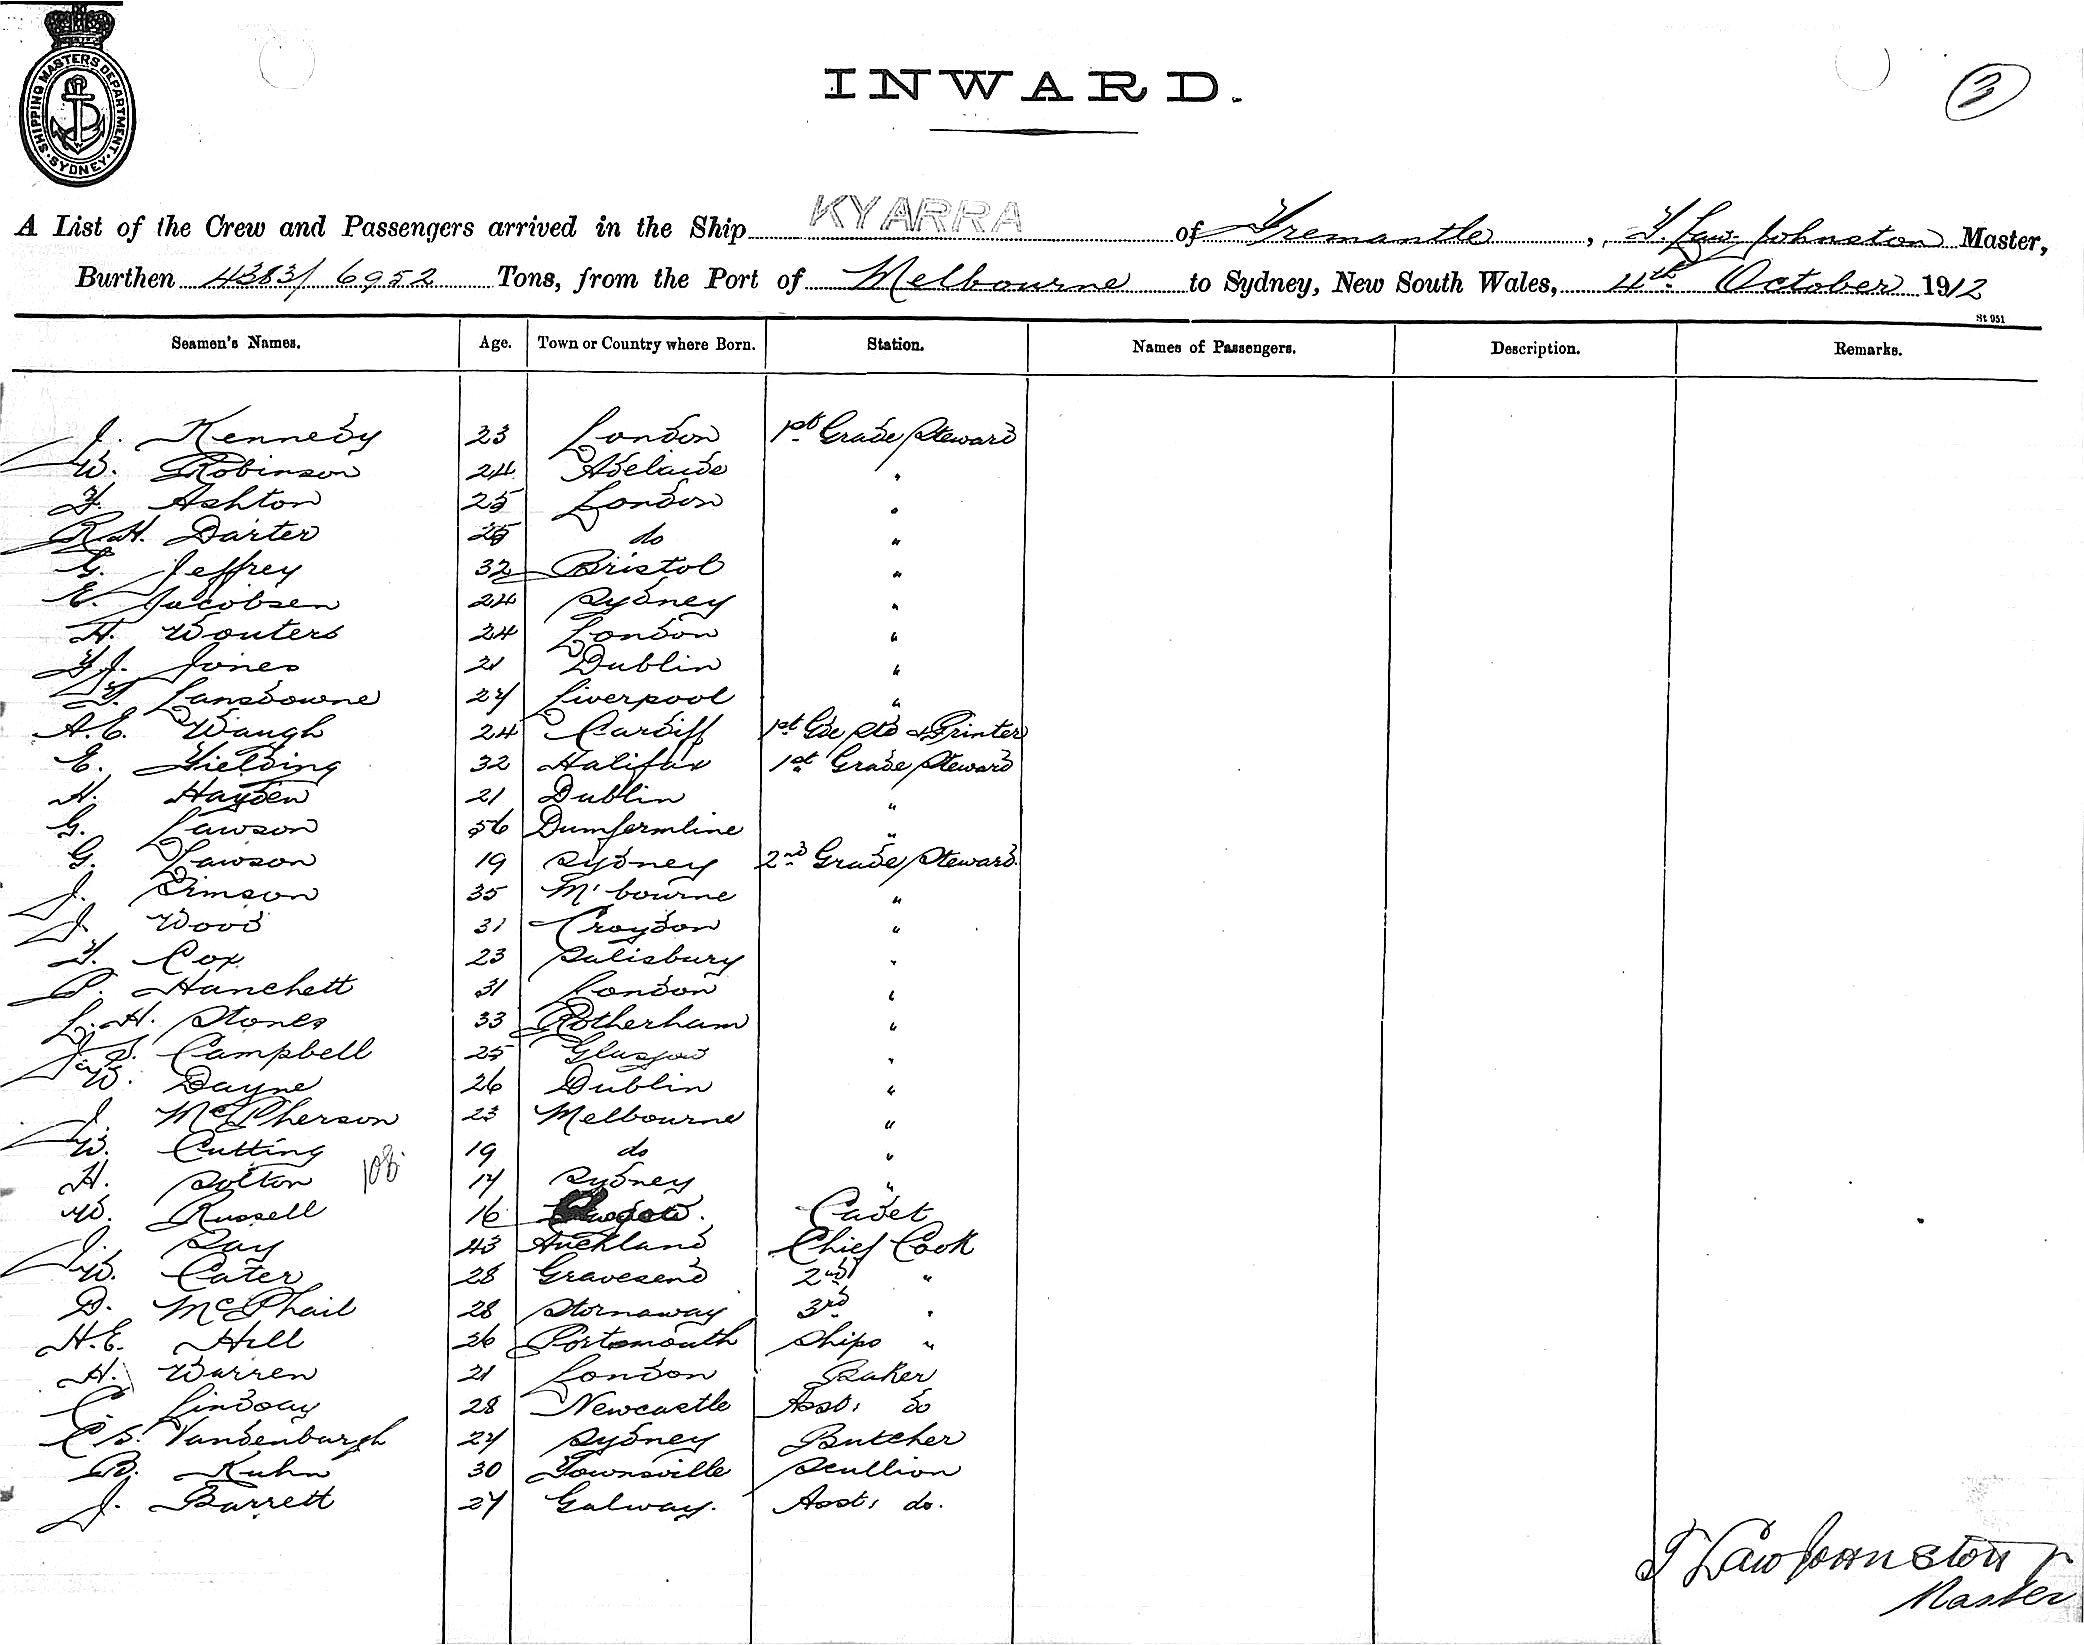 SHIPPING MASTERS DEPARTMENT. SYDNEY
INWARD.
3
A List of the Crew and Passengers arrived in the Ship KYARRA of Fremantle, T. Law. Johnston Master,
Burthen 4383/6952 Tons, from the Port of Melbourne to Sydney, New South Wales, 4th October 1912
St 951
Seamen's Names. Age. Town or Country where Born. Station. Names of Passengers. Description. Remarks.
J. Kennedy 23 London 1st Grade Steward
W. Robinson 24 Adelaide "
F. Ashton 25 London "
R.H. Darter 25 do "
G. Jeffrey 32 Bristol "
E. Jacobsen 24 Sydney "
H. Wouters 24 London "
F.J. Jones 21 Dublin "
Lansdowne 27 Liverpool "
A.E. Waugh 24 Cardiff 1st Gde Std & Printer
E. Fielding 32 Halifax 1st Grade Steward
H. Hayden 21 Dublin "
G. Lawson 56 Dumfermline "
G. Lawson 19 Sydney 2nd Grade Steward
J. Simson 35 M'bourne "
J. Wood 31 Croydon "
F. Cox 23 Salisbury "
P. Hanchett 31 London "
L.H. Stones 33 Rotherham "
Campbell 25 Glasgow "
W. Dayne 26 Dublin "
J. McPherson 23 Melbourne "
W. Cutting 19 do "
108.
H. Solton 17 Sydney "
W. Russell 16 Cadet
J. Ray 43 Auckland Chief Cook
W. Cater 28 Gravesend 2nd "
D. McPhail 28 Stornaway 3rd "
H.E. Hill 26 Portsmouth Ships "
H. Warren 21 London Baker
C. Lindsay 28 Newcastle Asst. do
C.S. Vandenburgh 27 Sydney Butcher
B. Kuhn 30 Townsville Scullion
J. Barrett 27 Galway. Asst. do.
T Law Johnston
Master